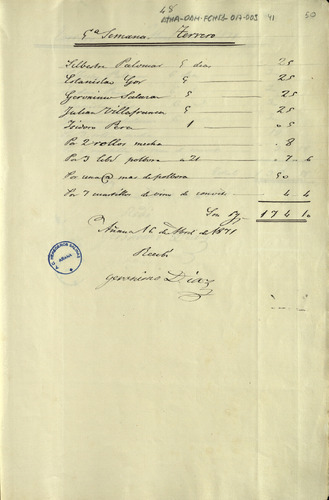 48
ATHA-DAH-FCHSB-017-003 41
50
5ª Semana. Terrero
Silbestre Palomar 5 dias 25
Estanislao Gor 5 25
Geronimo Salazar 5 25
Julian Villafranca 5 25
Isidoro Pera 1 05
Por 2 rollos mecha 8
Por 3 lib.s polbora a 21 7
Por una @ mas de polbora 50
Por 7 cuartillos de vino de convite 4 4
Son 174 10
Añana 16 de Abril de 1871
Recibi
Geronimo Diaz
AÑANA